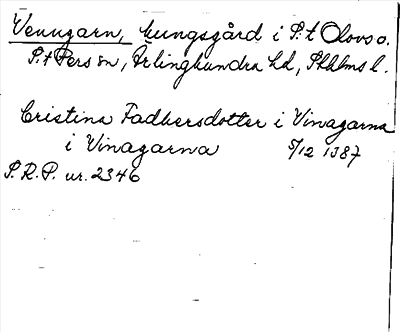 Venngarn, kungsgård i S:t Olovs o.
S:t Pers sn, Ärlinghundra hd, Sthlms l.
Cristina Fadhersdotter i Vinagarna
i Vinagarna 5/12 1387
S.R.P. nr. 2346